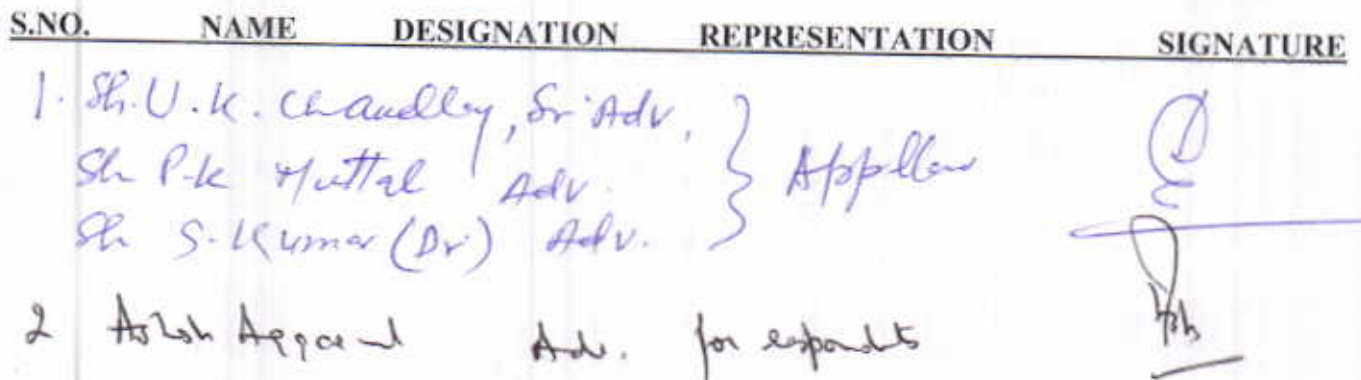 S.NO. NAME DESIGNATION REPRESENTATION SIGNATURE
1. Sh. U. K. Chaudhry, Sr. Adv.
Sh P.K Mittal Adv. Appellant
Sh S. Kumar (Dr) Adv.
2 Ashish Aggarwal Adv. for respondents